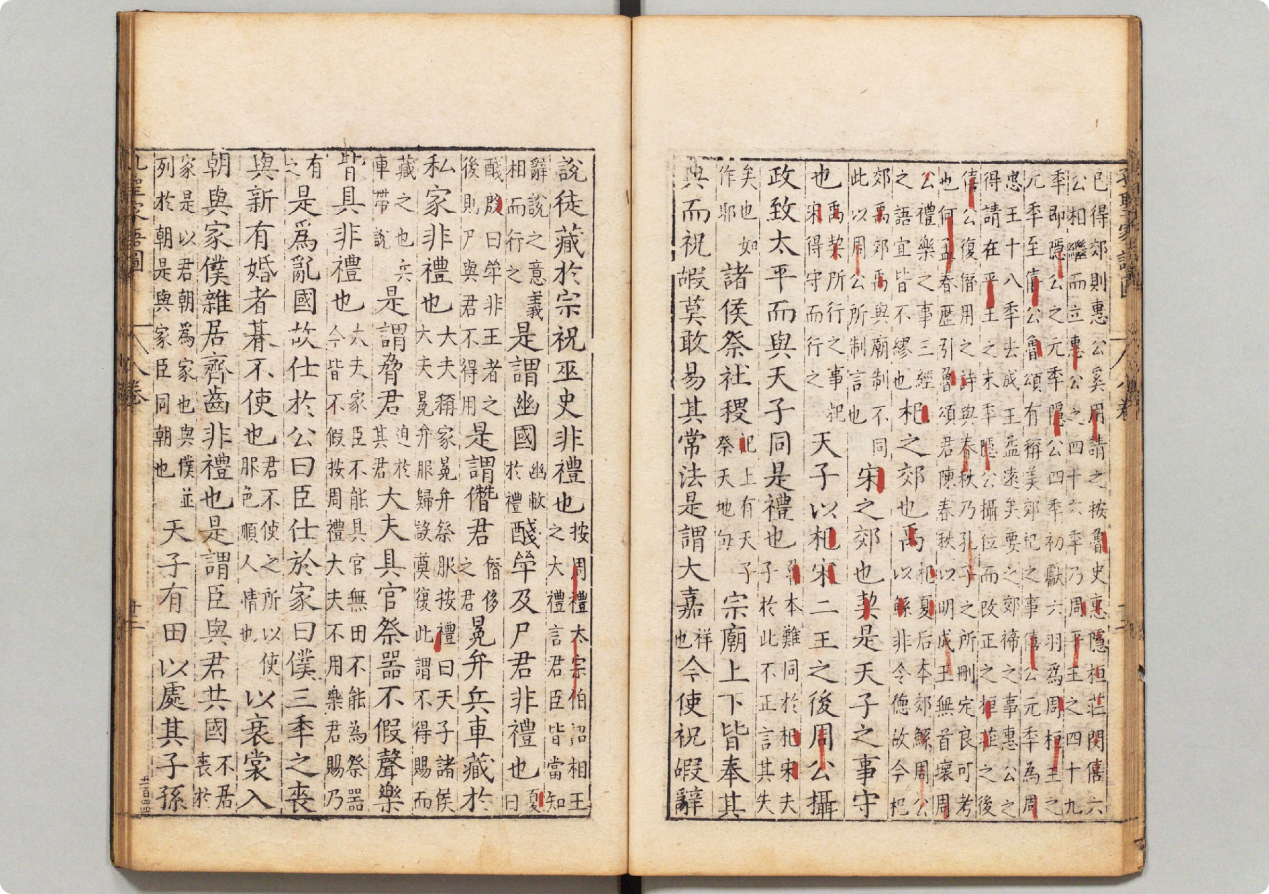 已得郊則惠公奚用請之按魯史惠隱桓莊閔僖六
公相繼而立惠公之四十六季乃周平王之四十九
季即隱公之元季隱公四季初獻六羽爲周桓王之
元季至僖公魯頌有稱美郊祀之事僖公元季為周
惠王十八季去成王益遠矣要之郊禘之事惠公之
得請在平王之末季隱公攝位而改正之桓莊之後
僖公復僭用之詩與春秋乃孔子之所刪定良可考
也何孟春歷引魯頌君陳春秋以明成王無首壞周
公禮樂之事三經之語宜皆不繆也杞之郊也禹杞夏后本郊鯀周公以鯀非令德故令杞
郊禹郊禹與廟制不同此以周公所制言也宋之郊也契是天子之事守
也禹契所行之事杞宋得守而行之天子以杞宋二王之後周公攝
政致太平而與天子同是禮也魯本難同於杞宋夫子於此不正言其失
矣也如作耶諸侯祭社稷杞上有天子祭天地句宗廟上下皆奉其
典而祝嘏莫敢易其常法是謂大嘉祥也今使祝嘏辭
說徒藏於宗祝巫史非禮也按周禮太宗伯詔相王之大禮言君臣皆當知
辭說之意義相而行之是謂幽國幽敝於禮醆斝及尸君非禮也夏曰
醆殷曰斝非王者之後則尸與君不得用是謂僭君僭侈之君冕弁兵車藏於
私家非禮也大夫稱家冕弁祭服按禮曰天子諸侯大夫冕弁服歸設奠復此謂不得賜而
藏之也兵車帶說是謂脅君迫於其君大夫具官祭器不假聲樂
皆具非禮也大夫家臣不能具官無田不能為祭器今皆不假按周禮大夫不用樂君賜乃
有之是爲亂國故仕於公曰臣仕於家曰僕三季之喪
與新有婚者朞不使也君不使之所以使服色順人情也以衰裳入
朝與家僕雜居齊齒非禮也是謂臣與君共國不君喪於
家是以君朝爲家也與僕並列於朝是與家臣同朝也天子有田以處其子孫